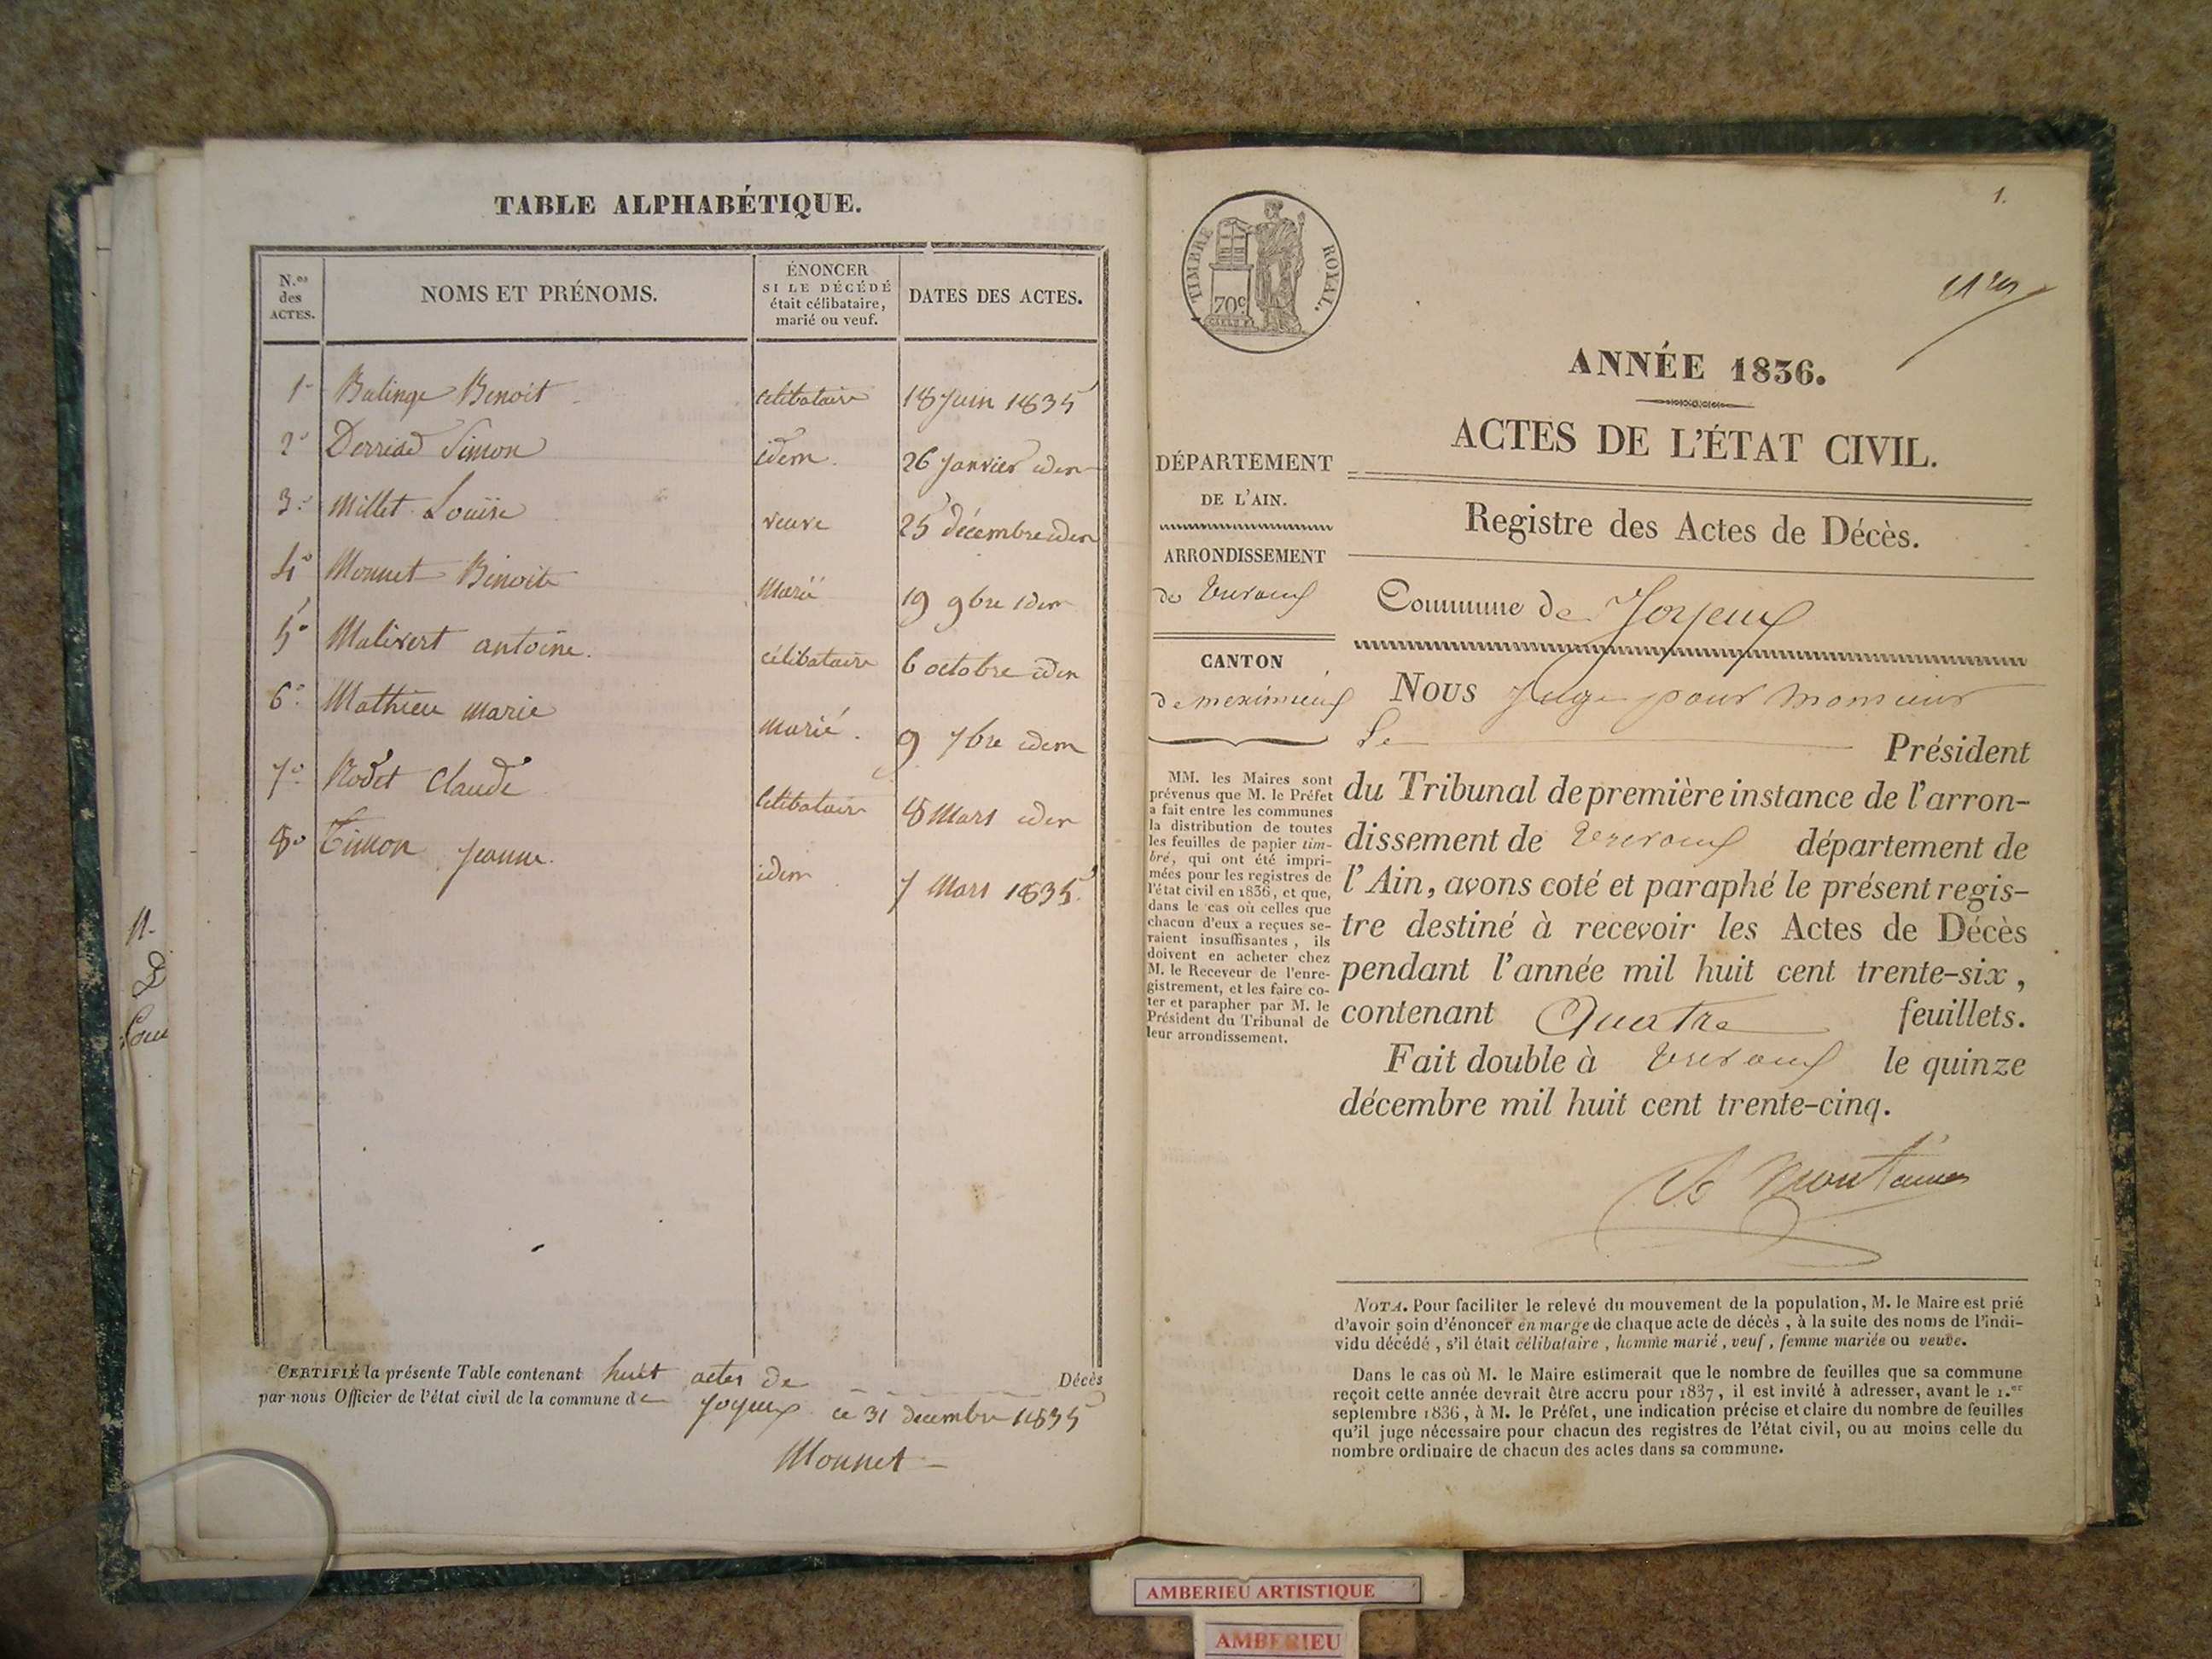 TABLE ALPHABÉTIQUE.
N.os des ACTES.
NOMS ET PRÉNOMS.
ÉNONCER SI LE DÉCÉDÉ était célibataire, marié ou veuf.
DATES DES ACTES.
1° Balinge Benoit célibataire 18 Juin 1835
2° Simon idem. 26 Janvier idem
3° Millet Louise veuve 25 décembre idem
4° Monnet Benoite Marié 19 9bre idem
5° Malivert antoine. célibataire 6 octobre idem
6° Mathieu marie marié. 9 7bre idem
7° Rodet Claude célibataire 8 Mars idem
8° Timon Jeanne. idem 7 Mars 1835.
CERTIFIÉ la présente Table contenant huit actes de Décès
par nous Officier de l'état civil de la commune de Joyeux ce 31 décembre 1835
Monnet
1.
TIMBRE ROYAL.
70c
ANNÉE 1836.
ACTES DE L'ÉTAT CIVIL.
DÉPARTEMENT
DE L'AIN.
ARRONDISSEMENT
de Trevoux
CANTON
de meximieux
MM. les Maires sont
prévenus que M. le Préfet
a fait entre les communes
la distribution de toutes
les feuilles de papier tim-
bré, qui ont été impri-
mées pour les registres de
l'état civil en 1836, et que,
dans le cas où celles que
chacun d'eux a reçues se-
raient insuffisantes, ils
doivent en acheter chez
M. le Receveur de l'enre-
gistrement, et les faire co-
ter et parapher par M. le
Président du Tribunal de
leur arrondissement.
Registre des Actes de Décès.
Commune de Joyeux
Nous Juge pour Monsieur
Le Président
du Tribunal de première instance de l'arron-
dissement de Trevoux département de
l'Ain, avons coté et paraphé le présent regis-
tre destiné à recevoir les Actes de Décès
pendant l'année mil huit cent trente-six,
contenant Quatre feuillets.
Fait double à Trevoux le quinze
décembre mil huit cent trente-cinq.
NOTA. Pour faciliter le relevé du mouvement de la population, M. le Maire est prié
d'avoir soin d'énoncer en marge de chaque acte de décès, à la suite des noms de l'indi-
vidu décédé, s'il était célibataire, homme marié, veuf, femme mariée ou veuve.
Dans le cas où M. le Maire estimerait que le nombre de feuilles que sa commune
reçoit cette année devrait être accru pour 1837, il est invité à adresser, avant le 1.er
septembre 1836, à M. le Préfet, une indication précise et claire du nombre de feuilles
qu'il juge nécessaire pour chacun des registres de l'état civil, ou au moins celle du
nombre ordinaire de chacun des actes dans sa commune.
AMBERIEU ARTISTIQUE
AMBERIEU